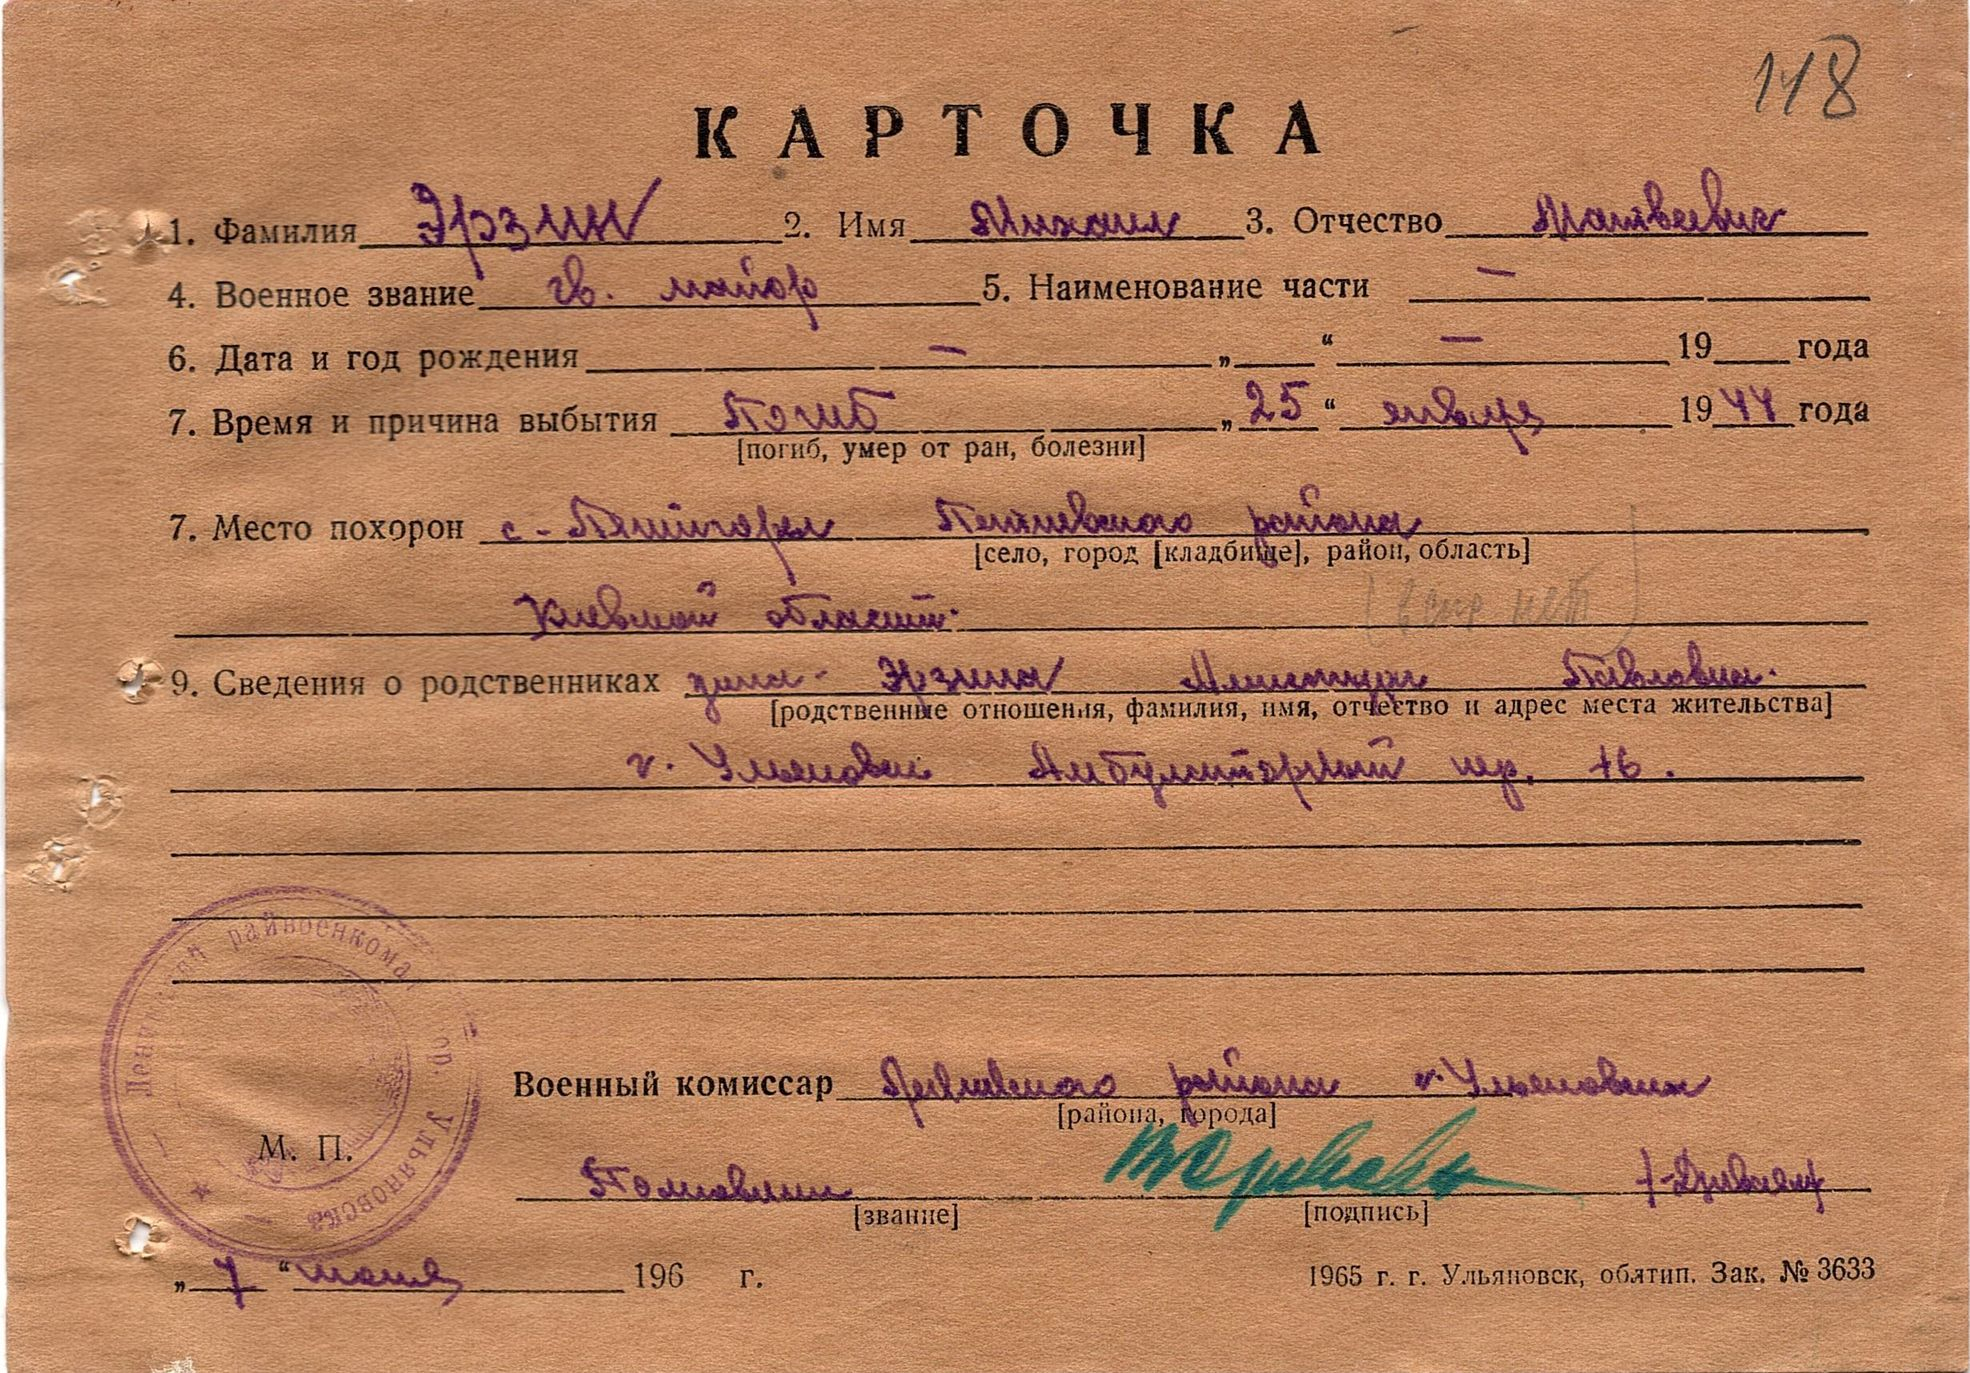 118
КАРТОЧКА
1. Фамилия Эрзин 2. Имя Михаил 3. Отчество Матвеевич
4. Военное звание гв. майор 5. Наименование части —
6. Дата и год рождения — „ “ — 19 года
7. Время и причина выбытия Погиб „25“ января 1944 года
[погиб, умер от ран, болезни]
7. Место похорон с-Пятигоры Тетиевского района
[село, город [кладбище], район, область]
Киевской области.
(в спр нет)
9. Сведения о родственниках жена- Эрзина Павловна.
[родственные отношения, фамилия, имя, отчество и адрес места жительства]
г. Ульяновск Амбулаторный пер. 16.
Ленинский райвоенкомат гор. Ульяновска
Военный комиссар Ленинского района г. Ульяновска
[района, города]
М. П.
Полковник
[звание] [подпись]
„7“ июня 196 г.
1965 г. г. Ульяновск, облтип. Зак. № 3633